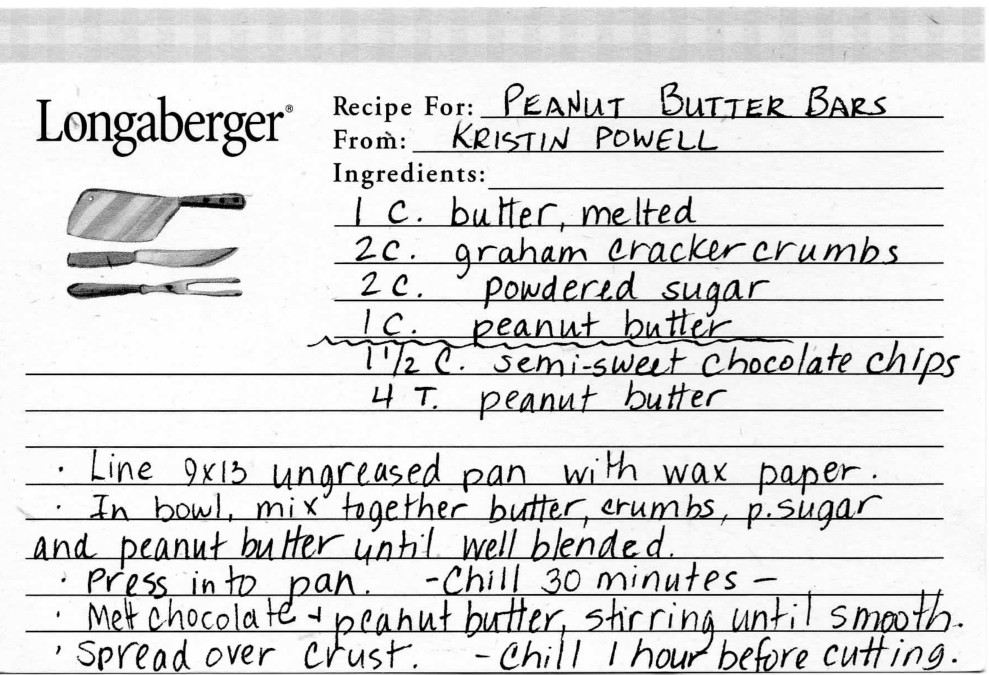 Longaberger®
Recipe For: PEANUT BUTTER BARS
From: KRISTIN POWELL
Ingredients:
1 C. butter, melted
2 C. graham cracker crumbs
2 C. powdered sugar
1 C. peanut butter
1 1/2 C. semi-sweet chocolate chips
4 T. peanut butter
· Line 9x13 ungreased pan with wax paper.
· In bowl, mix together butter, crumbs, p.sugar
and peanut butter until well blended.
· Press into pan. - Chill 30 minutes -
· Melt chocolate + peanut butter, stirring until smooth.
· Spread over crust. - Chill 1 hour before cutting.